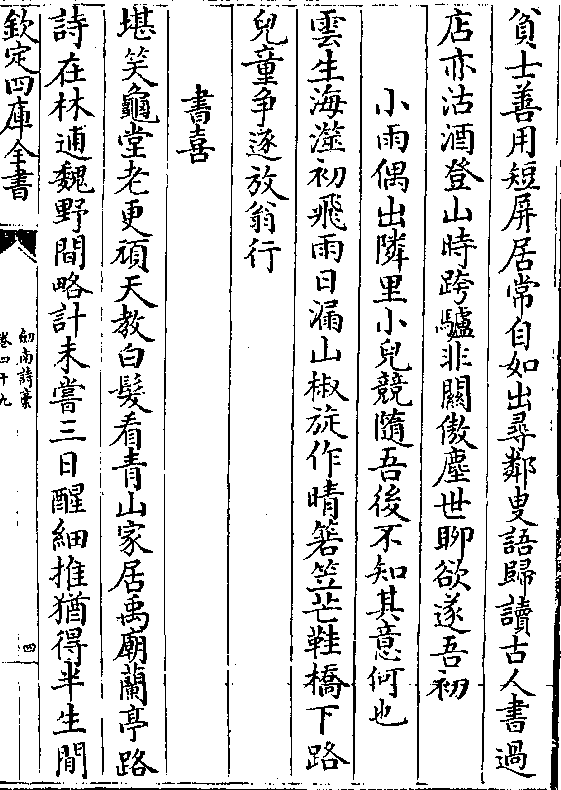 貧士善用短屏居常自如出尋鄰叟語歸讀古人書過
店亦沽酒登山時跨驢非關傲塵世聊欲遂吾初
小雨偶出隣里小兒競隨吾後不知其意何也
雲生海澨初飛雨日漏山椒旋作晴箬笠芒鞋橋下路
兒童争逐放翁行
書喜
堪笑龜堂老更頑天教白髮看青山家居禹廟蘭亭路
詩在林逋魏野間略計未嘗三日醒細推猶得半生閒
欽定四庫全書
劍南詩藁
卷四十九
四